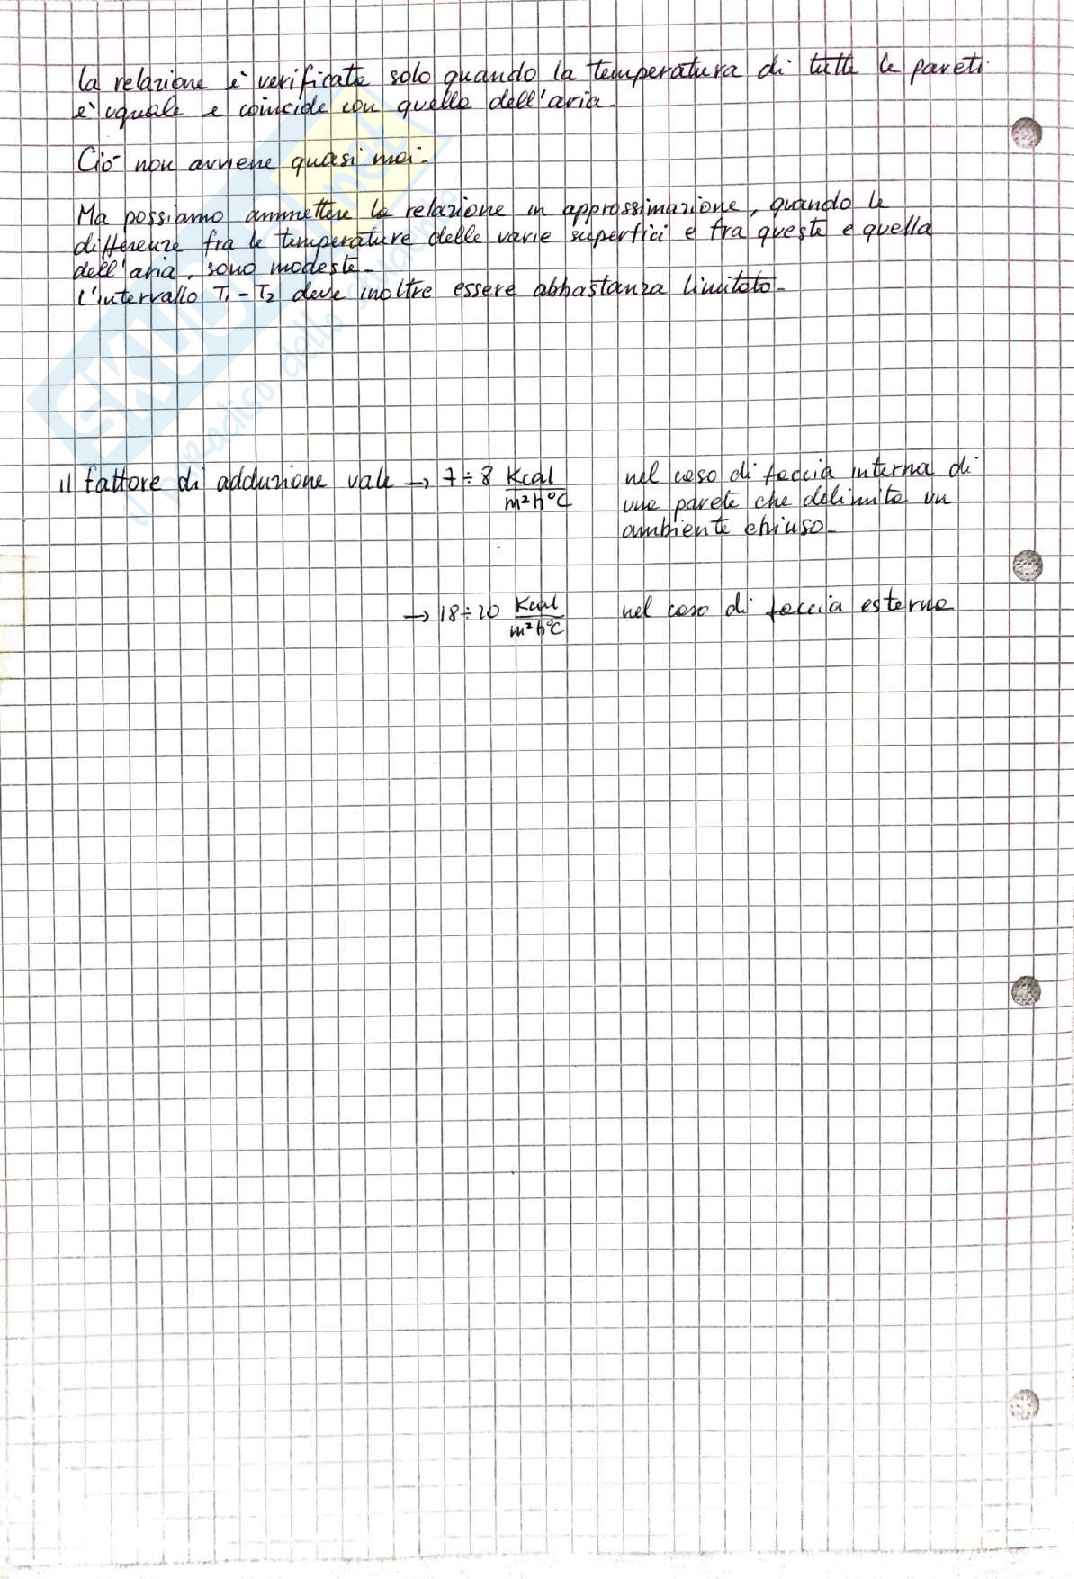 la relazione è verificata solo quando la temperatura di tutte le pareti
è uguale e coincide con quella dell'aria.
Ciò non avviene quasi mai.
Ma possiamo ammettere la relazione in approssimazione, quando le
differenze fra le temperature delle varie superfici e fra queste e quella
dell'aria, sono modeste.
L'intervallo T₁ - T₂ deve inoltre essere abbastanza limitato.
il fattore di adduzione vale → 7÷8 Kcal/m²h°C nel caso di faccia interna di
una parete che delimita un
ambiente chiuso.
→ 18÷20 Kcal/m²h°C nel caso di faccia esterna